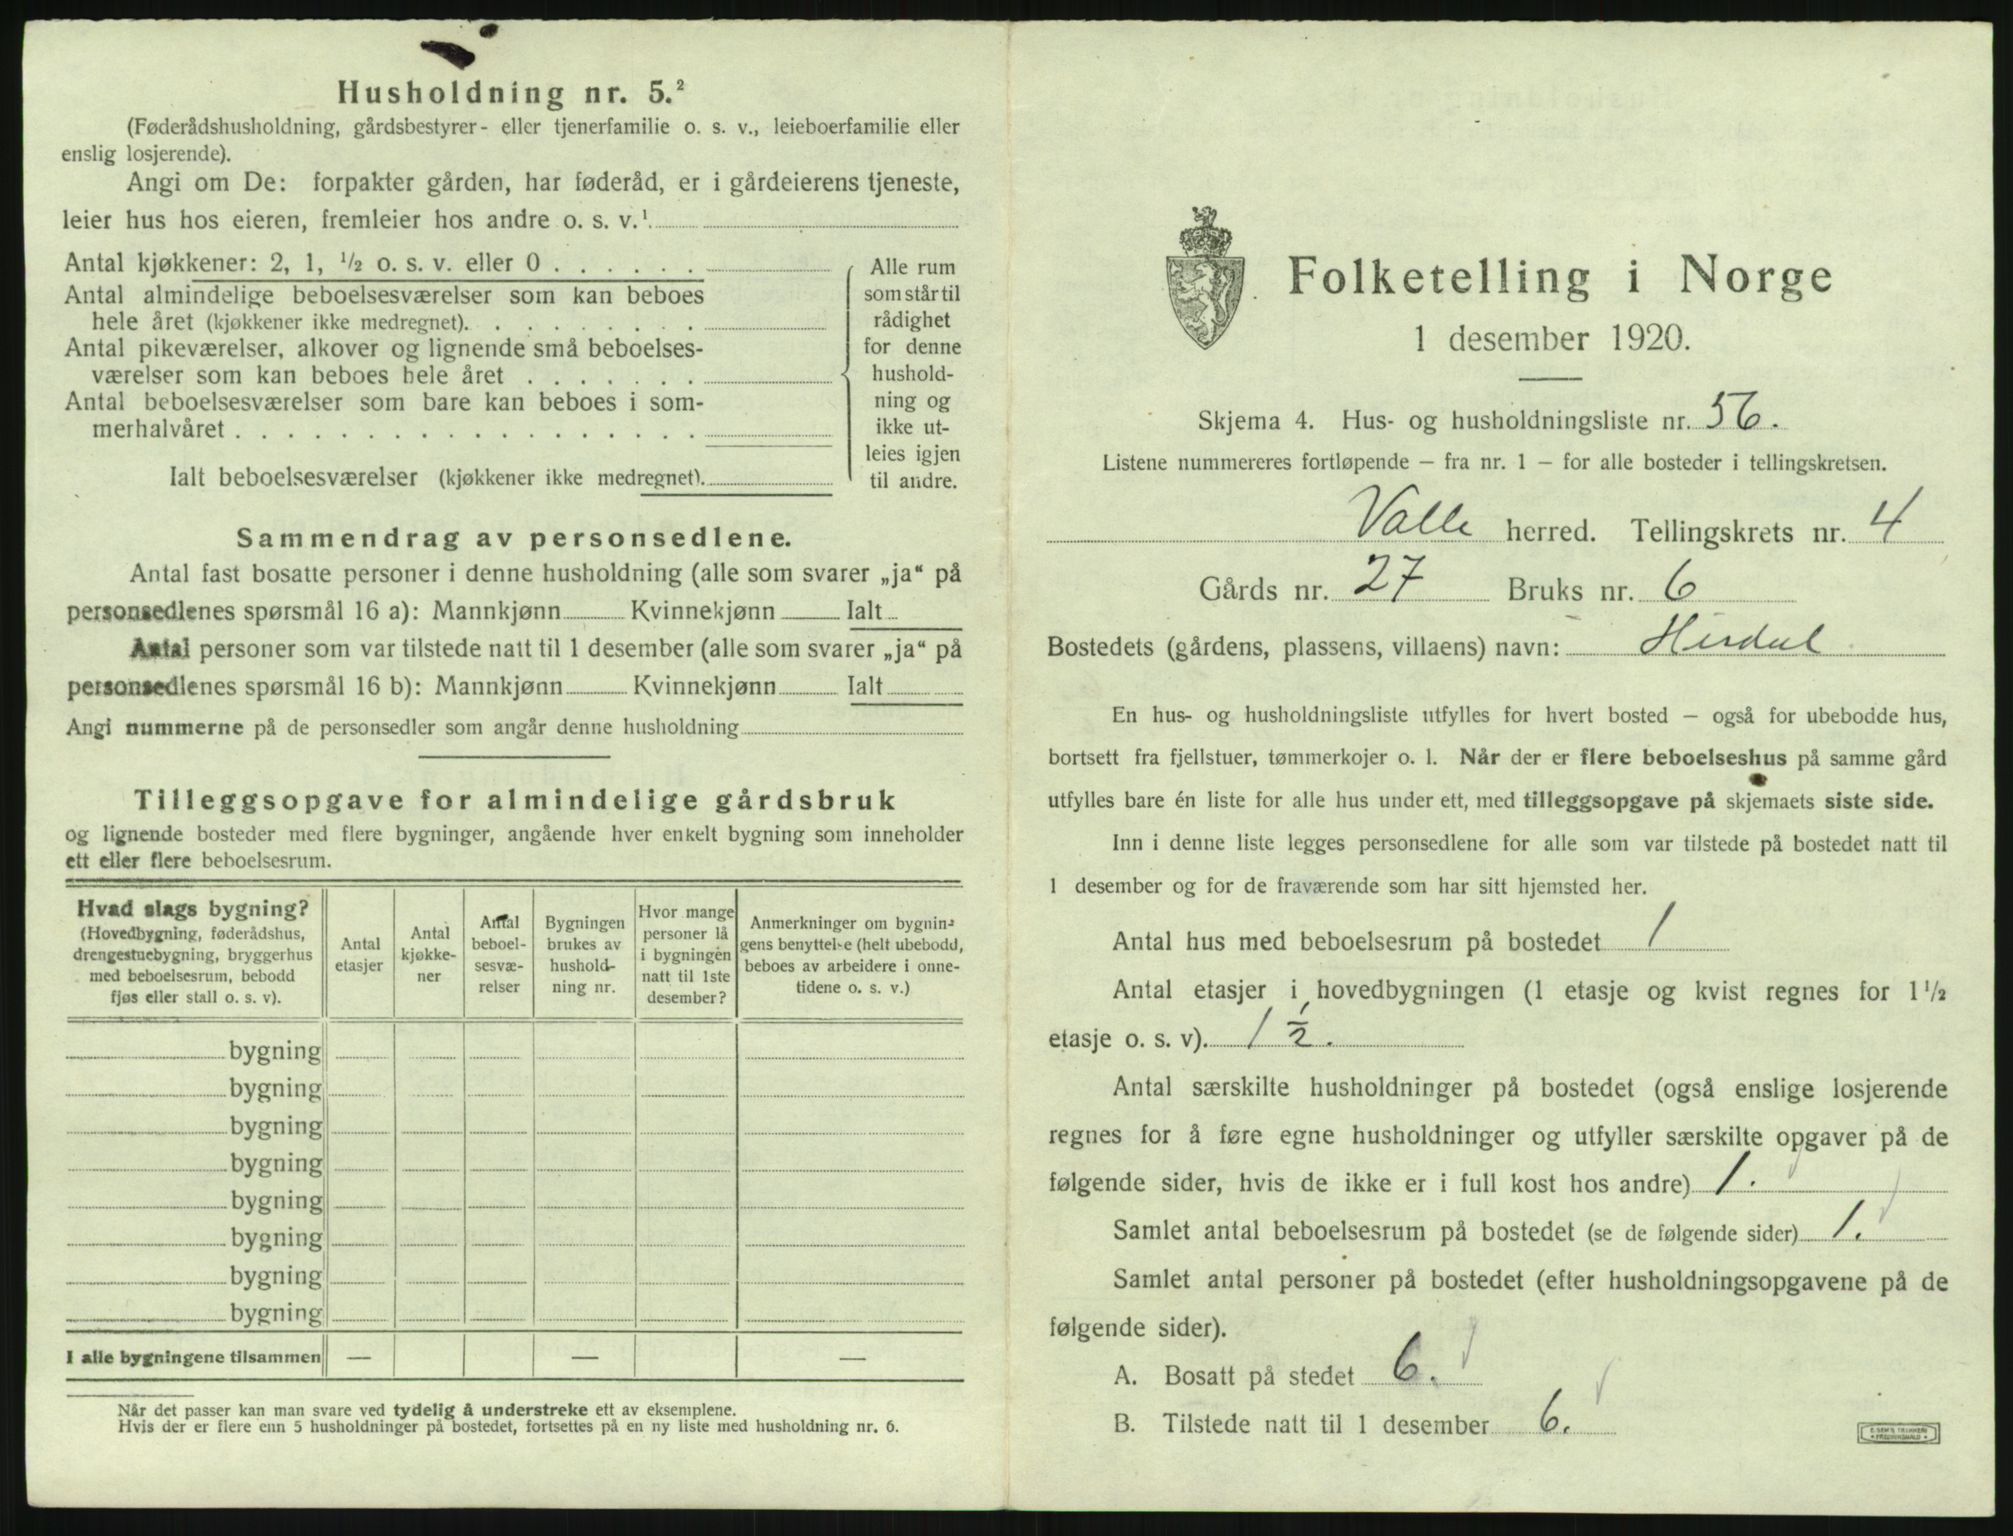 Husholdning nr. 5.²
(Føderådshusholdning, gårdsbestyrer- eller tjenerfamilie o. s. v., leieboerfamilie eller
enslig losjerende).
Angi om De: forpakter gården, har føderåd, er i gårdeierens tjeneste,
leier hus hos eieren, fremleier hos andre o. s. v.¹
Antal kjøkkener: 2, 1, ½ o. s. v. eller 0 . . . . . .
Antal almindelige beboelsesværelser som kan beboes
hele året (kjøkkener ikke medregnet). . . . . . . . .
Antal pikeværelser, alkover og lignende små beboelses-
værelser som kan beboes hele året . . . . . . .
Antal beboelsesværelser som bare kan beboes i som-
merhalvåret . . . . . . . . . . . . . . . . . .
Ialt beboelsesværelser (kjøkkener ikke medregnet).
Alle rum
som står til
rådighet
for denne
hushold-
ning og
ikke ut-
leies igjen
til andre.
Sammendrag av personsedlene.
Antal fast bosatte personer i denne husholdning (alle som svarer „ja“ på
personsedlenes spørsmål 16 a): Mannkjønn Kvinnekjønn Ialt
Antal personer som var tilstede natt til 1 desember (alle som svarer „ja“ på
personsedlenes spørsmål 16 b): Mannkjønn Kvinnekjønn Ialt
Angi nummerne på de personsedler som angår denne husholdning
Tilleggsopgave for almindelige gårdsbruk
og lignende bosteder med flere bygninger, angående hver enkelt bygning som inneholder
ett eller flere beboelsesrum.
Hvad slags bygning?
(Hovedbygning, føderådshus,
drengestuebygning, bryggerhus
med beboelsesrum, bebodd
fjøs eller stall o. s. v).
Antal
etasjer
Antal
kjøkke-
ner
Antal
beboel-
sesvæ-
relser
Bygningen
brukes av
hushold-
ning nr.
Hvor mange
personer lå
i bygningen
natt til 1ste
desember?
Anmerkninger om bygnin-
gens benyttelse (helt ubebodd,
beboes av arbeidere i onne-
tidene o. s. v.)
bygning
bygning
bygning
bygning
bygning
bygning
bygning
bygning
I alle bygningene tilsammen — — —
Når det passer kan man svare ved tydelig å understreke ett av eksemplene.
Hvis der er flere enn 5 husholdninger på bostedet, fortsettes på en ny liste med husholdning nr. 6.
Folketelling i Norge
1 desember 1920.
Skjema 4. Hus- og husholdningsliste nr. 56.
Listene nummereres fortløpende – fra nr. 1 – for alle bosteder i tellingskretsen.
Valle herred. Tellingskrets nr. 4
Gårds nr. 27 Bruks nr. 6
Bostedets (gårdens, plassens, villaens) navn: Hisdal
En hus- og husholdningsliste utfylles for hvert bosted – også for ubebodde hus,
bortsett fra fjellstuer, tømmerkojer o. l. Når der er flere beboelseshus på samme gård
utfylles bare én liste for alle hus under ett, med tilleggsopgave på skjemaets siste side.
Inn i denne liste legges personsedlene for alle som var tilstede på bostedet natt til
1 desember og for de fraværende som har sitt hjemsted her.
Antal hus med beboelsesrum på bostedet 1
Antal etasjer i hovedbygningen (1 etasje og kvist regnes for 1½
etasje o. s. v). 1 ½.
Antal særskilte husholdninger på bostedet (også enslige losjerende
regnes for å føre egne husholdninger og utfyller særskilte opgaver på de
følgende sider, hvis de ikke er i full kost hos andre) 1.
Samlet antal beboelsesrum på bostedet (se de følgende sider) 1.
Samlet antal personer på bostedet (efter husholdningsopgavene på de
følgende sider).
A. Bosatt på stedet 6.
B. Tilstede natt til 1 desember 6.